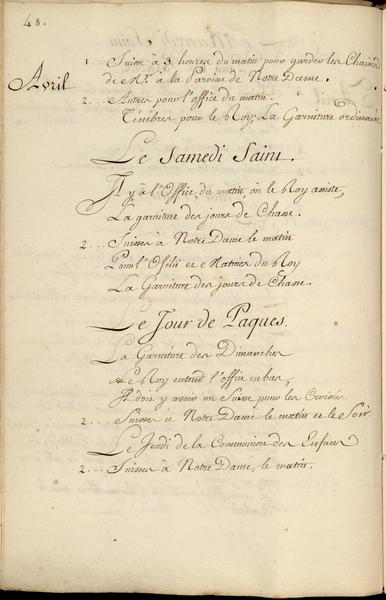 48.
Avril
1... Suisse à 9 heures du matin pour garder les Chaises
de Mrs. à la Paroisse de Notre Dame.
2... Autres pour l'office du matin.
Ténébres pour le Roy; La Garniture ordinaire
Le Samedi Saint.
Il y a l'Office du matin, où le Roy assiste,
La garniture des jours de Chasse.
2... Suisses à Notre Dame le matin
Pour l'Office et Matines du Roy
La Garniture des jours de Chasse.
Le Jour de Paques.
La Garniture des Dimanches
Le Roy entend l'office en bas,
Il doit y avoir un Suisse pour les Croisées
2... Suisses à Notre Dame le matin et le Soir
Le Jeudi de la Communion des Enfans
2... Suisses à Notre Dame, le matin.